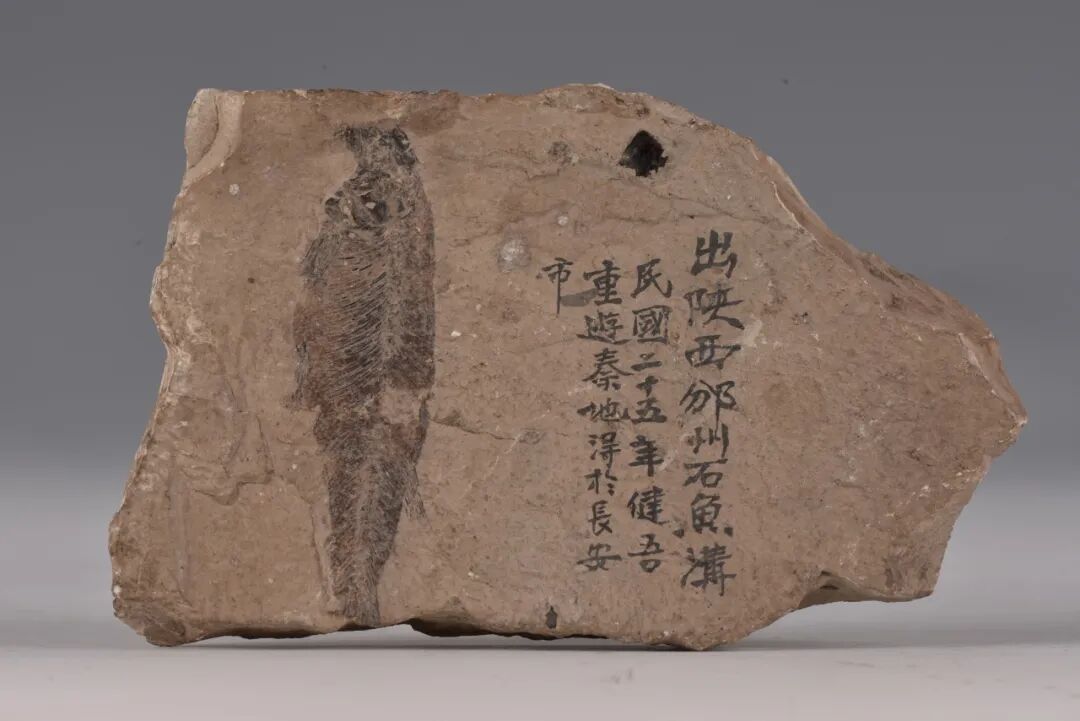 出陝西邠州石魚溝
民國二十五年健吾
重遊秦地得於長安
市